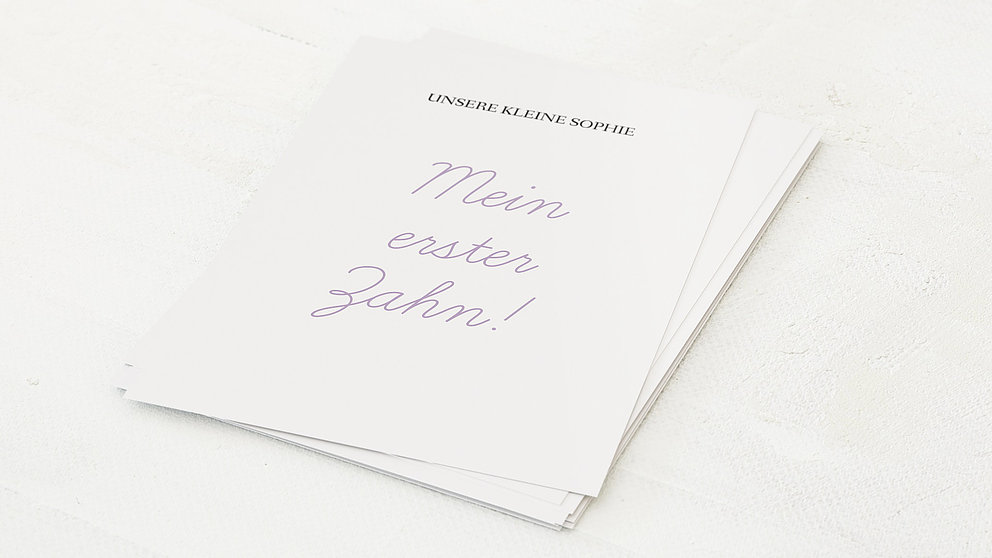 UNSERE KLEINE SOPHIE
Mein
erster
Zahn!